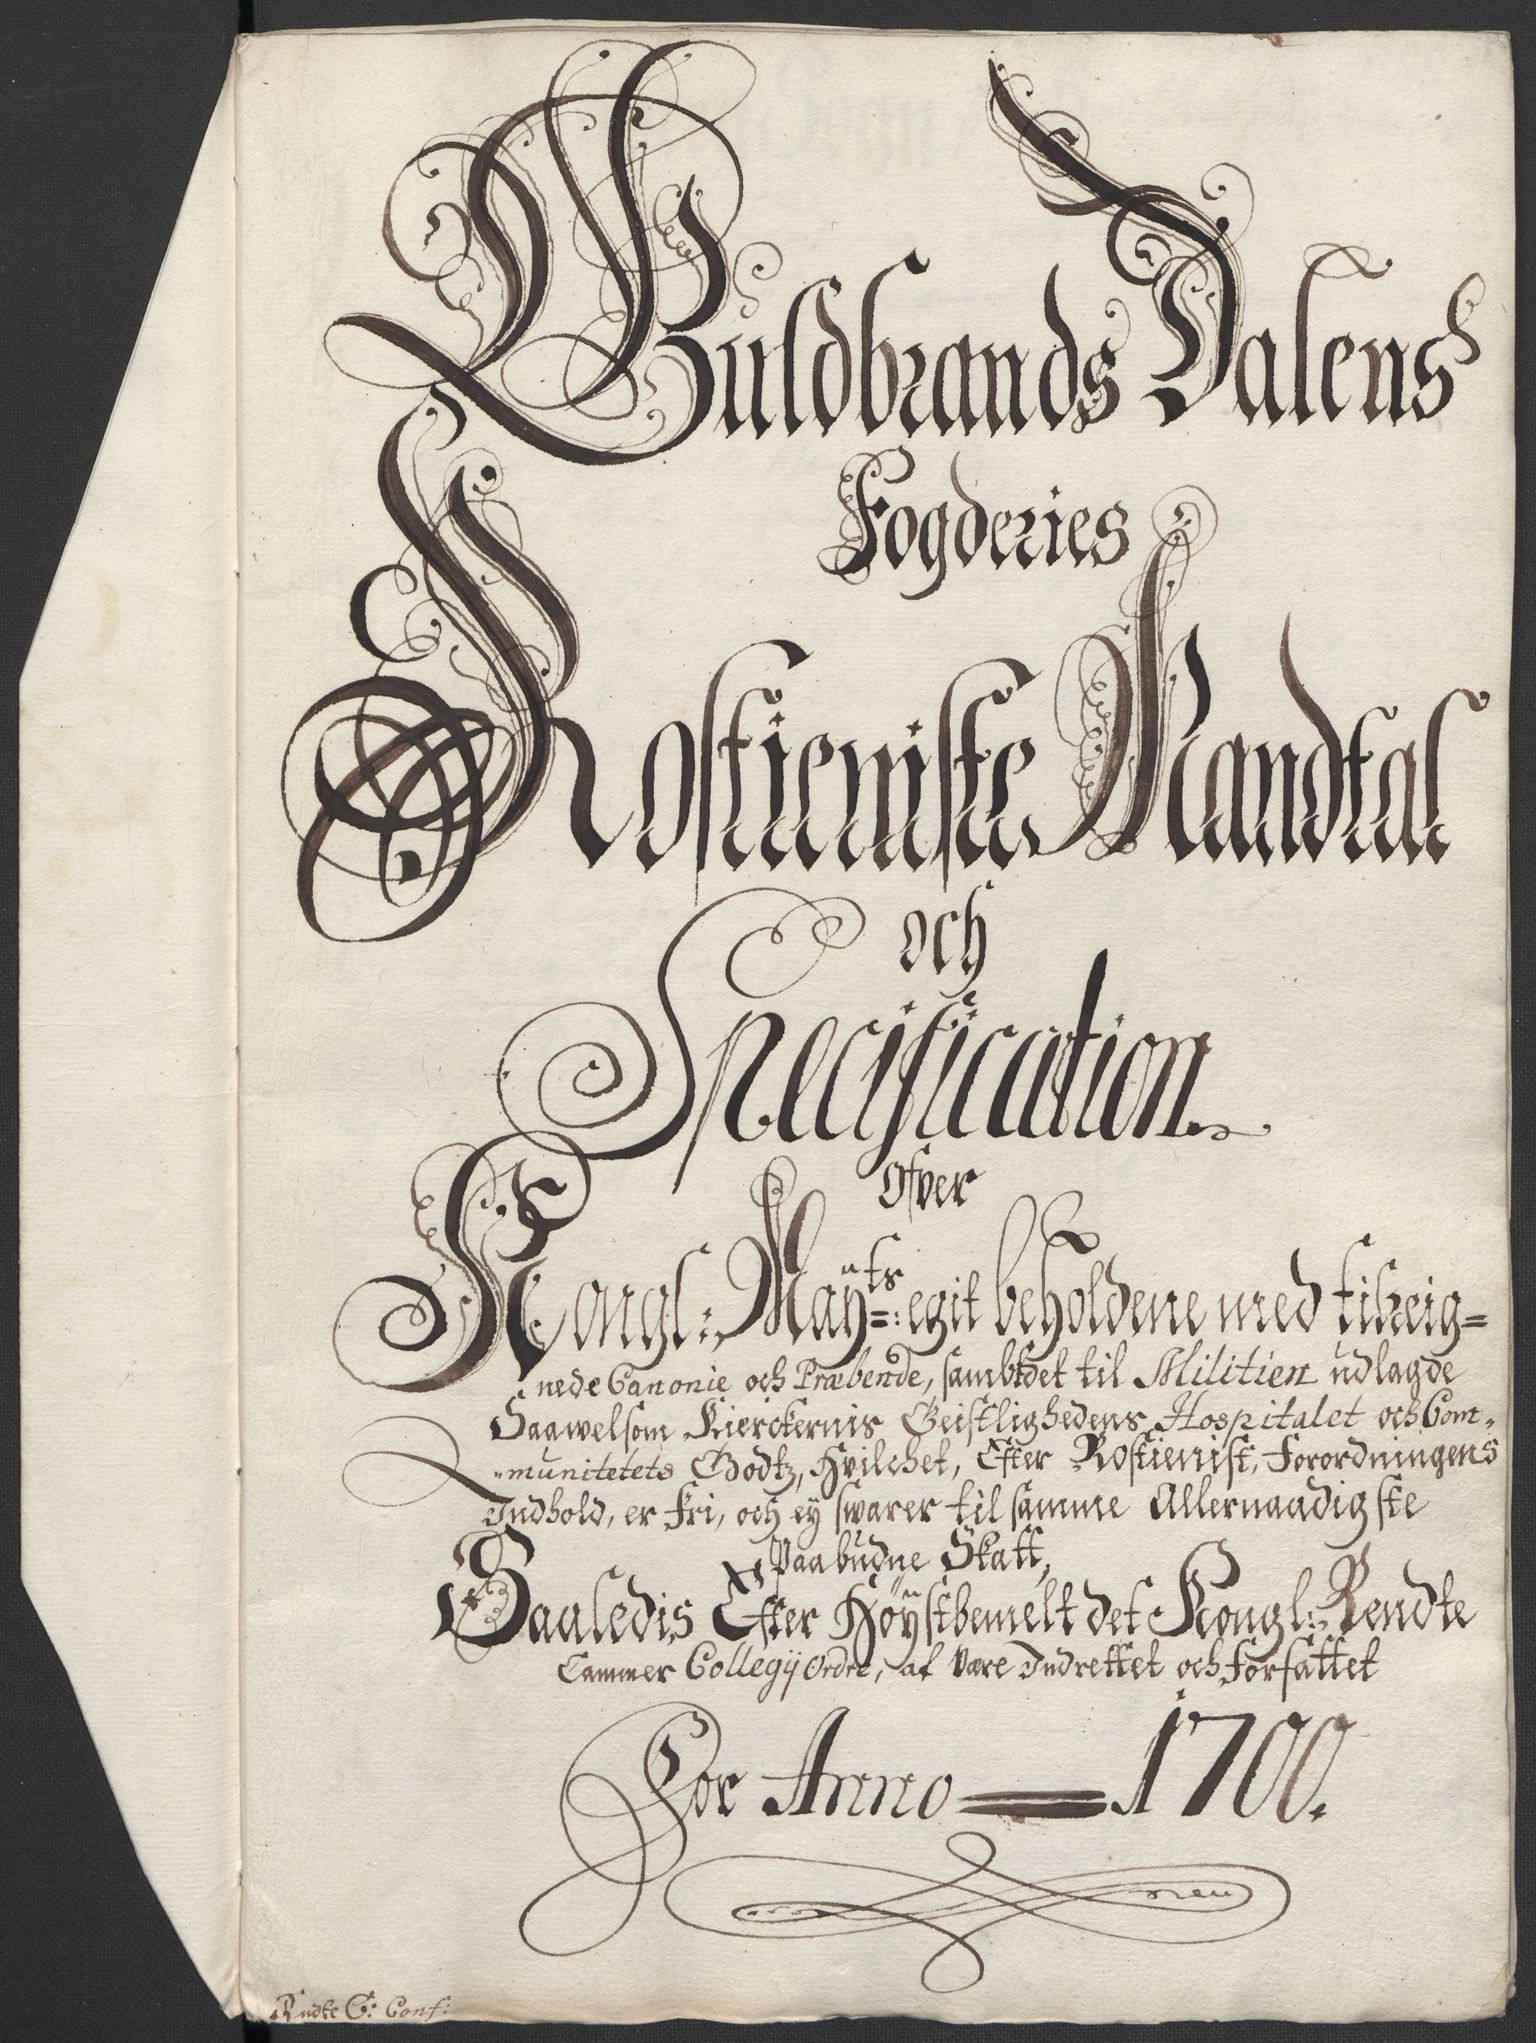 Guldbrands Dalens
Fogderies
Rostieniste Mandtal
och
Specification
Ofver
Kongl: Maÿts=: egit beholdene med tilreig=
nede Canonie och Præbende, sambt det til Militien udlagde
Saawelsom Kierckernis Geistlighedens Hospitalet och Com=
=munitetets Godtz, Hvilchet, Efter Rostienist, Forordningens
Indhold, er fri, och eÿ swarer til samme Allernaadigste
Paabudne Skatt,
Saaledis Efter Höÿstbemelt det Kongl: Rendte
Cammer Collegij Ordre, af Være Indrettet och forfattet
For Anno 1700.
Rndte C: Conf: